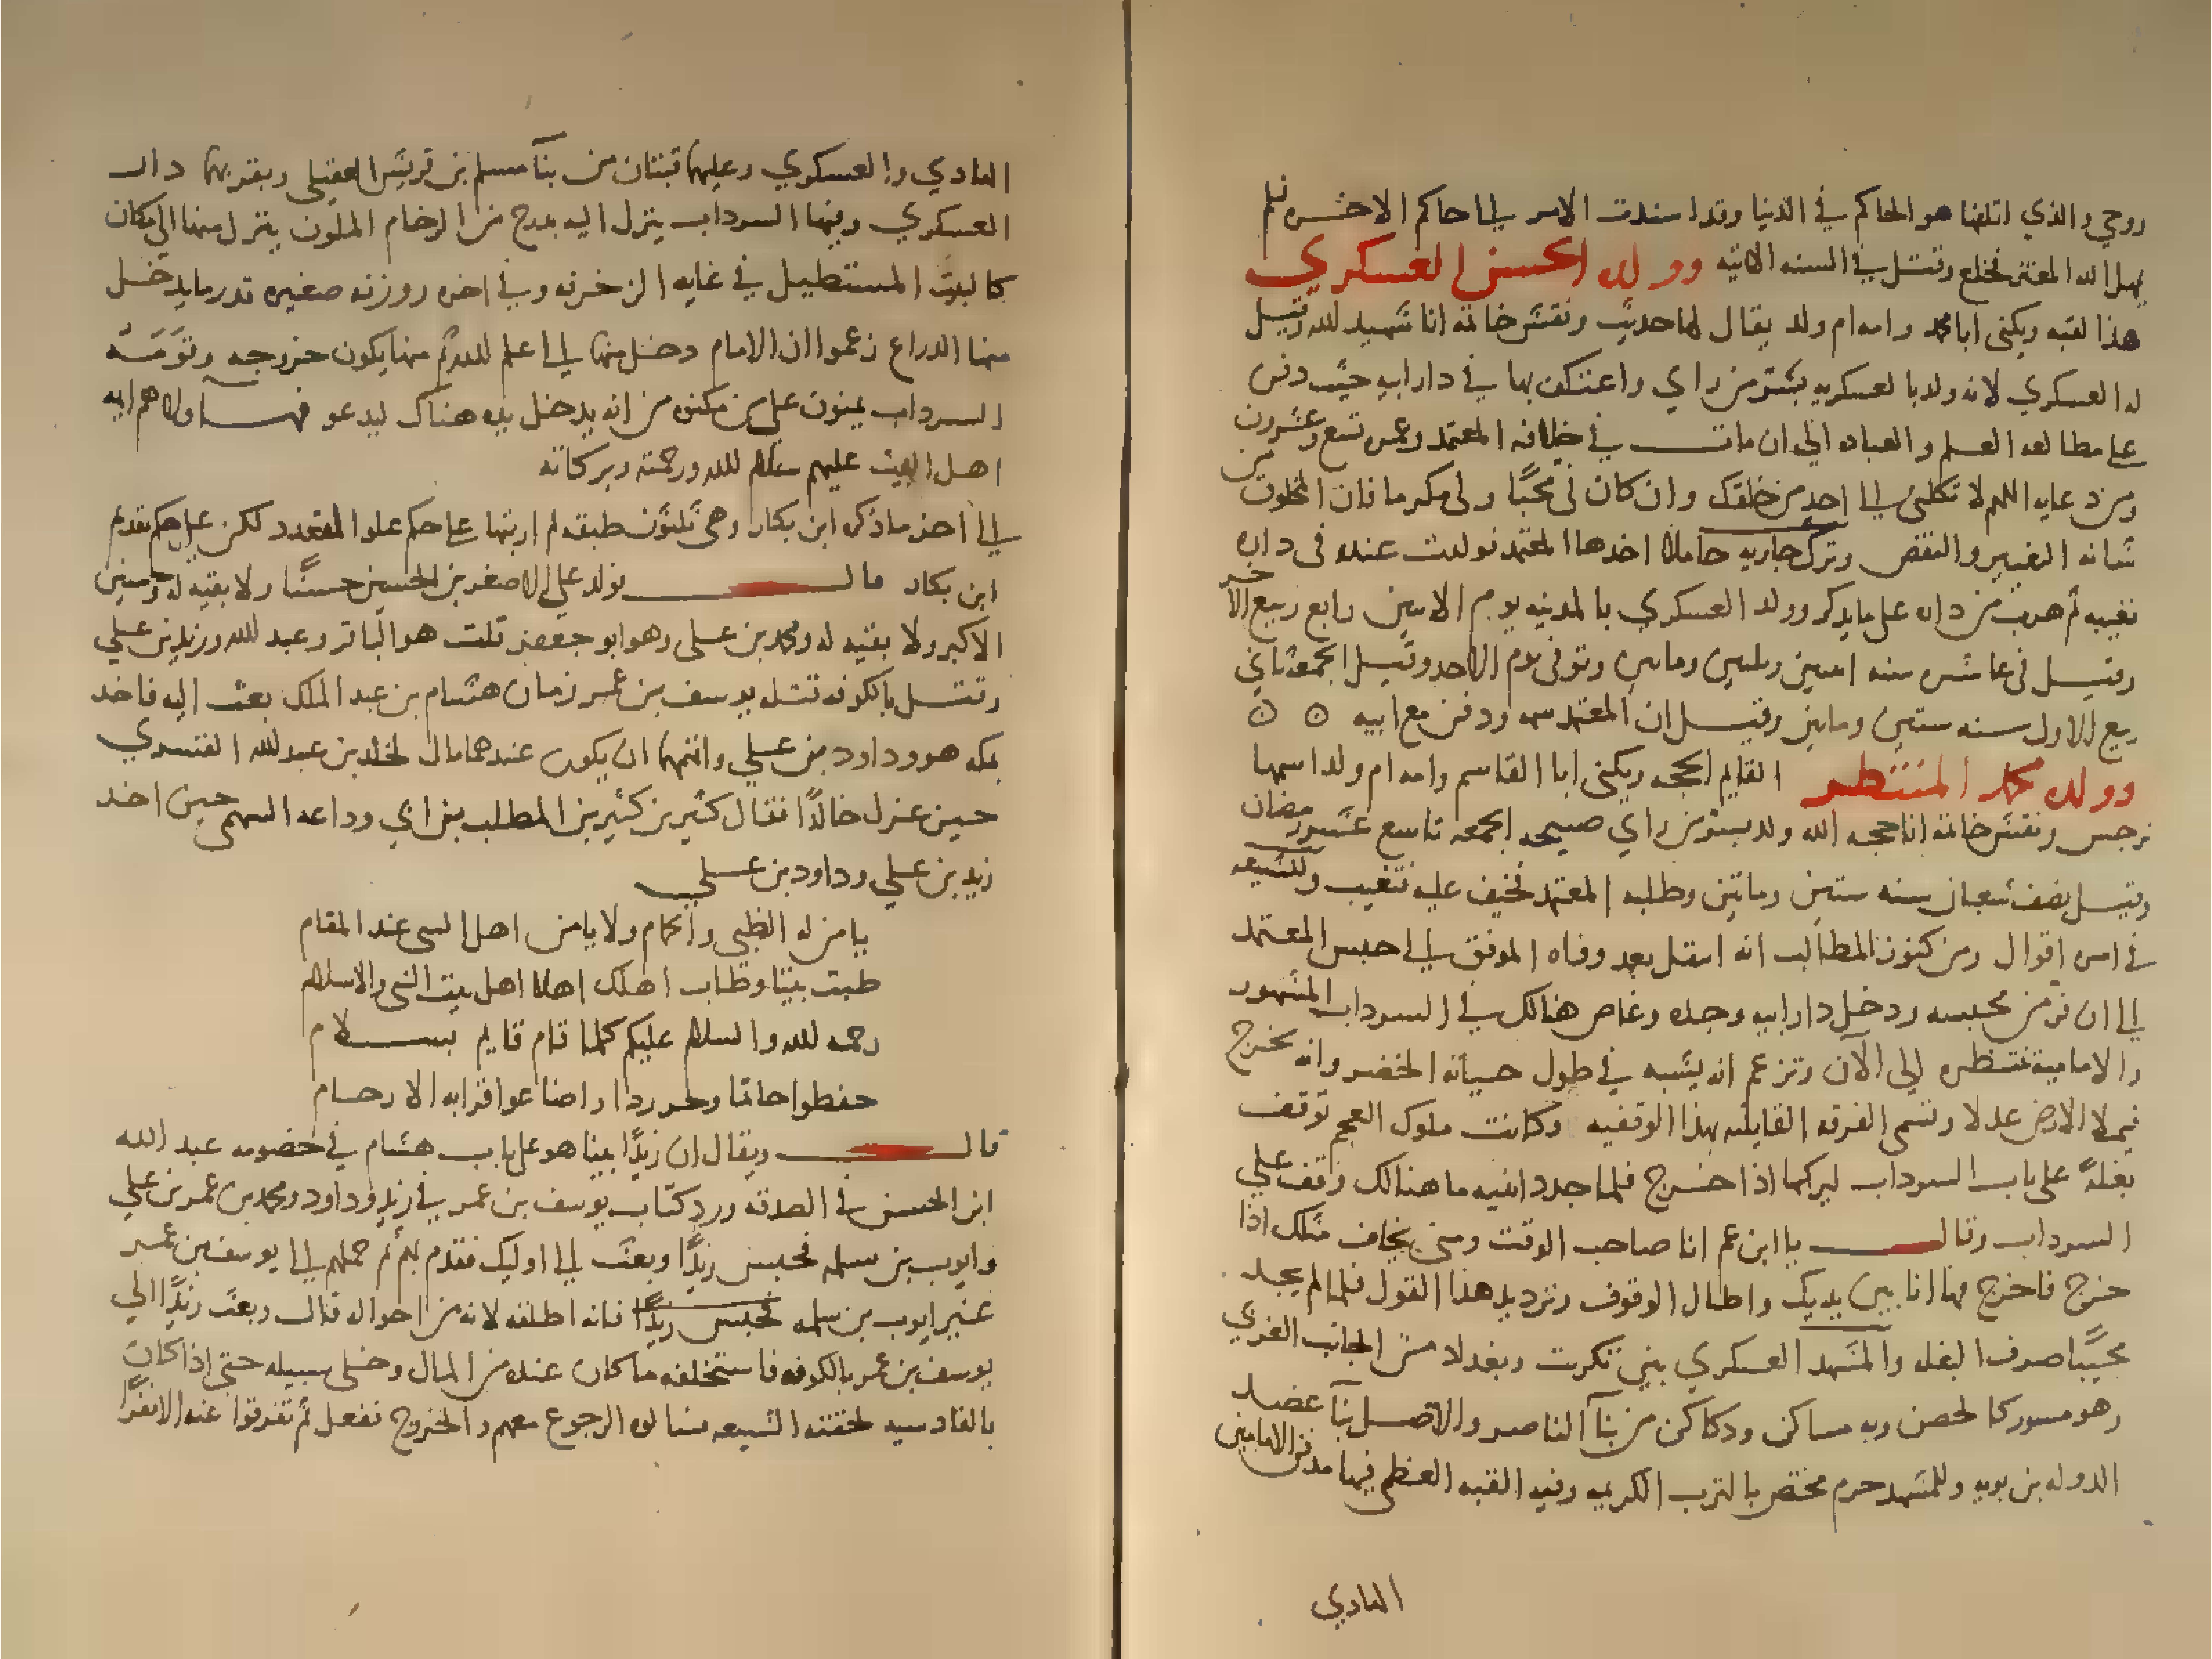 روحي والذي اتلفها هو الحاكم في الدنيا وقد اسندت الامر الى حاكم الاخره فلم
يهل الله المعتز فخلع وقتل في السنه الاتيه وولده الحسن العسكري
هذا لقبه ويكنى ابا محمد وامه ام ولد يقال لها حديث ونقش خاتمه انا شهيد لله وقيل
له العسكري لانه ولد بالعسكريه بسر من راي واعتكف بها في دار ابيه حيث دفن
على مطالعه العلم والعباده الى ان مات في خلافه المعتمد وعمره تسع وعشرون
ومن دعايه اللهم لا تكلني الى احد من خلقك وان كان لي محبًا ولي مكرما فان المخلوق من
شانه التغيير والنقض وترك جاريه حاملا اخدها المعتمد فولدت عنده في داره
تغيبه ثم هرب من داره على مايذكر وولد العسكري بالمدينه يوم الاثنين رابع ربيع الاخر
وقيل في عاشره سنه اثنين وثلثين ومايتين وتوفي يوم الاحد وقيل الجمعة ثاني
ربيع الاول سنه ستين ومايتين وقيل ان المعتمد سمه ودفن مع ابيه
وولده محمد المنتظر القايم الحجه ويكنى ابا القاسم وامه ام ولد اسمها
نرجس ونقش خاتمه انا حجه الله ولد بسر من راي صبيحه الجمعه تاسع عشر رمضان
وقيل نصف شعبان سنه ستين وماتين وطلبه المعتمد فخيف عليه فتغيب وللشيعه
في امره اقوال ومن كنوز المطالب انه اعتقل بعد وفاه الموفق الى احبس المعتمد
الى ان فر من محبسه ودخل دار ابيه وجده وغاص هنالك في السرداب المشهور
والامامية تنتظره الى الآن وتزعم انه يشبه في طول حياته الخضر وانه يخرج
فيملا الارض عدلا وتسمى الفرقه القايله بهذا الوقفيه وكانت ملوك العجم توقف
بغلةً على باب السرداب ليركبها اذا خرج فلما جدد ابنيه ما هنالك وقف علي
السرداب وقال يا ابن عم انا صاحب الوقت ومني يخاف مثلك اذا
خرج فاخرج فها انا بين يديك واطال الوقوف وترديد هذا القول فلما لم يجد
مجيبًا صرف البغله والمشهد العسكري بين تكرت وبغداد من الجانب الغربي
وهو مسور كالحصن وبه مساكن ودكاكن من بنآ الناصر والاصل بنآ عضد
الدوله بن بويه وللمشهد حرم مختص بالترب الكريمه وفيه القبه العظمى فيها مدفن الامامين
الهادي
الهادي والعسكري وعليهما قبتان من بنآ مسلم بن قريش العقيلي وبقربهما دار
العسكري وبها السرداب ينزل اليه بدرج من الرخام الملون ينزل منها الى مكان
كالبيت المستطيل في غايه الزخرفه وفي اخره روزنه صغيره قدر مايدخل
منها الدراع زعموا ان الامام دخل منها الى علم الله ثم منها يكون خروجه وقومة
السرداب يمنون على من مكنوه من انه يدخل يده هناك ليدعو فهـ
اهل البيت عليهم سلام الله ورحمته وبركاته
الى اخر ما ذكره ابن بكار وهي ثلثون طبقه لم ارتبها على حكم علو القعدد لكن على حكم تقدم
ابن بكار قال فولد علي الاصغر بن الحسين حسنًا ولا بقيه له وحسين
الاكبر ولا بقيه له ومحمد بن علي وهو ابو جعفر قلت هو الباقر وعبد الله وزيد بن علي
وقتل بالكوفه قتله يوسف بن عمر زمان هشام بن عبد الملك بعث اليه فاخد
بمكه هو وداود بن علي واتهمهما ان يكون عندهما مال لخالد بن عبد الله القسري
حين عزل خالدًا فقال كثير بن كثير بن المطلب بن ابي وداعه السهمي حين اخد
زيد بن علي وداود بن علي
يامن له الظبي والحمام ولا يامن اهل النبي عند المقام
طبت بيتا وطاب اهلك اهلا اهل بيت النبي والاسلام
رحمه الله والسلام عليكم كلما قام قايم بسلام
حفظوا خاتما وجر ردا واضاعوا قرابه الارحام
قال ويقال ان زيدًا بينا هو على باب هشام في خصومه عبد الله
ابن الحسن في الصدقه ورد كتاب يوسف بن عمر في زيد وداود ومحمد بن عمر بن علي
وايوب بن سلمه فحبس زيدًا وبعث الى اوليك فقدم بهم ثم حملهم الى يوسف بن عمر
غير ايوب بن سلمه فحبس زيدًا فانه اطلقه لانه من اخواله قال وبعث زيدًا الي
يوسف بن عمر بالكوفه فاستحلفه ما كان عنده من المال وخلى سبيله حتى اذا كان
بالقادسيه لحقته الشيعه فسالوه الرجوع معهم والخروج ففعل ثم تفرقوا عنه الا نفرًا